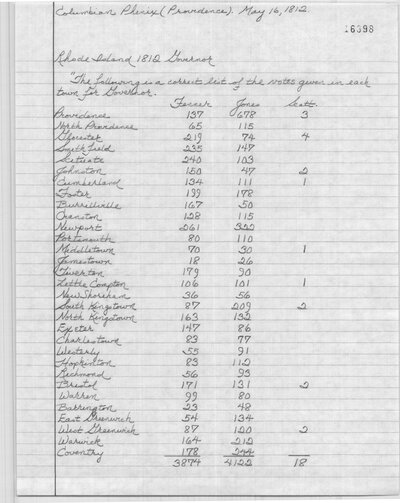 Columbian Phenix (Providence). May 16, 1812.
16398
Rhode Island 1812 Governor
"The following is a correct list of the votes given in each
town for Governor.
Fenner Jones Scatt.
Providence 137 678 3
North Providence 65 115
Glocester 219 74 4
Smithfield 235 147
Scituate 240 103
Johnston 150 47 2
Cumberland 134 111 1
Foster 199 178
Burrillville 167 50
Cranston 128 115
Newport 261 322
Portsmouth 80 110
Middletown 70 30 1
Jamestown 18 26
Tiverton 179 90
Little Compton 106 101 1
New Shoreham 36 56
South Kingstown 87 209 2
North Kingstown 163 132
Exeter 147 86
Charlestown 83 77
Westerly 55 91
Hopkinton 83 112
Richmond 56 93
Bristol 171 131 2
Warren 99 80
Barrington 23 48
East Greenwich 54 134
West Greenwich 87 120 2
Warwick 164 212
Coventry 178 244
3874 4122 18